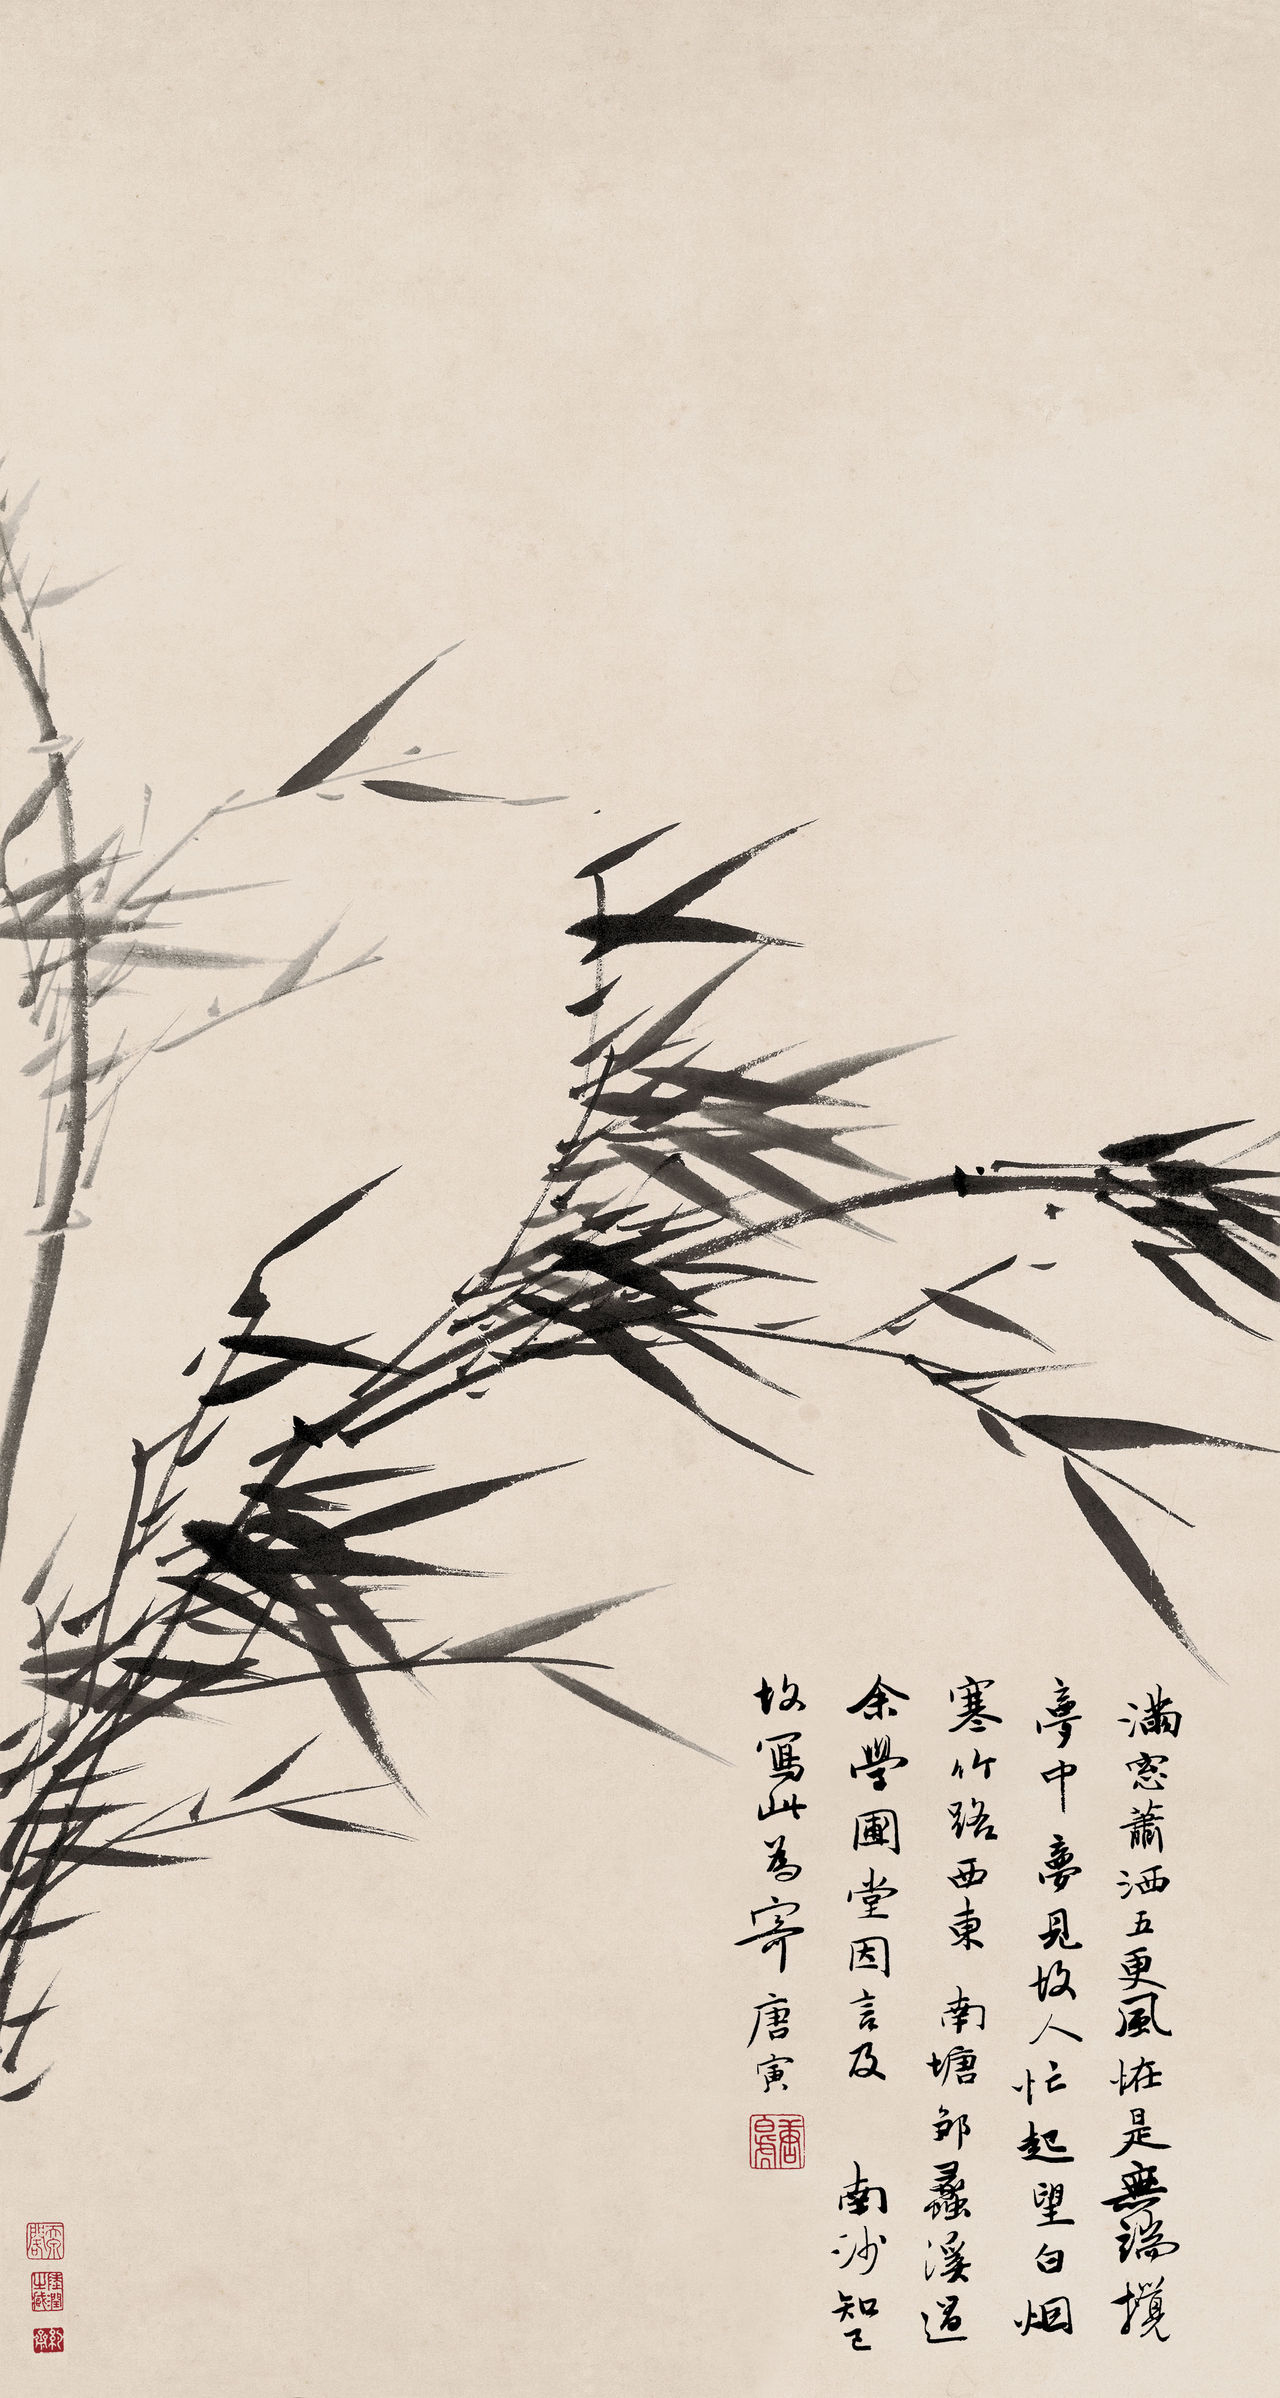 滿窓蕭洒五更風恠是無端攪
夢中夢見故人忙起望白烟
寒竹路西東 南塘邹蠡溪過
余學圃堂因言及 南沙知己
故寫此為寄 唐寅